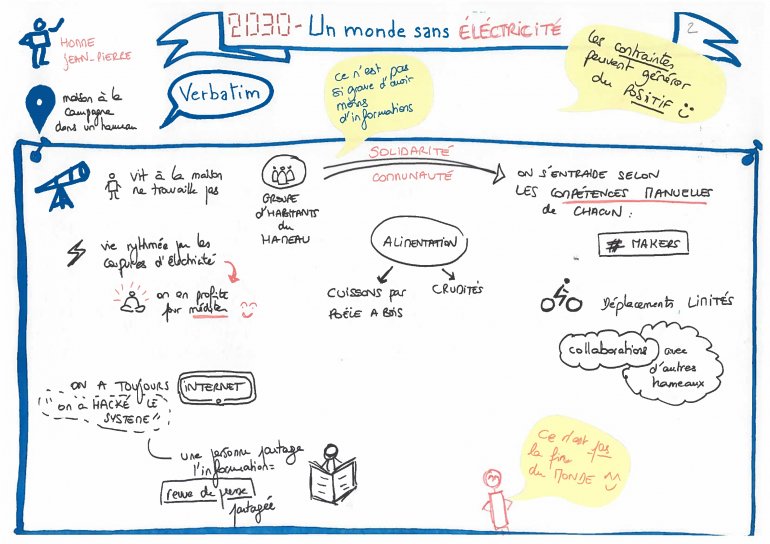 2030 - Un monde sans ÉLÉCTRICITÉ
2
HOMME
JEAN-PIERRE
maison à la
campagne
dans un hameau
Verbatim
ce n'est pas
si grave d'avoir
moins
d'informations
Les contraintes
peuvent générer
du POSITIF
vit à la maison
ne travaille pas
GROUPE
d'HABITANTS
du
HAMEAU
SOLIDARITÉ
COMMUNAUTÉ
ON S'ENTRAIDE SELON
LES COMPÉTENCES MANUELLES
de CHACUN :
# MAKERS
vie rythmée par les
coupures d'éléctricité
on en profite
pour méditer
ALIMENTATION
CUISSONS par
POÊLE A BOIS
CRUDITÉS
Déplacements LIMITÉS
collaborations avec
d'autres
hameaux
ON A TOUJOURS INTERNET
"on a HACKÉ LE
SYSTEME"
une personne partage
l'information =
revue de presse
partagée
Ce n'est pas
la fin
du MONDE